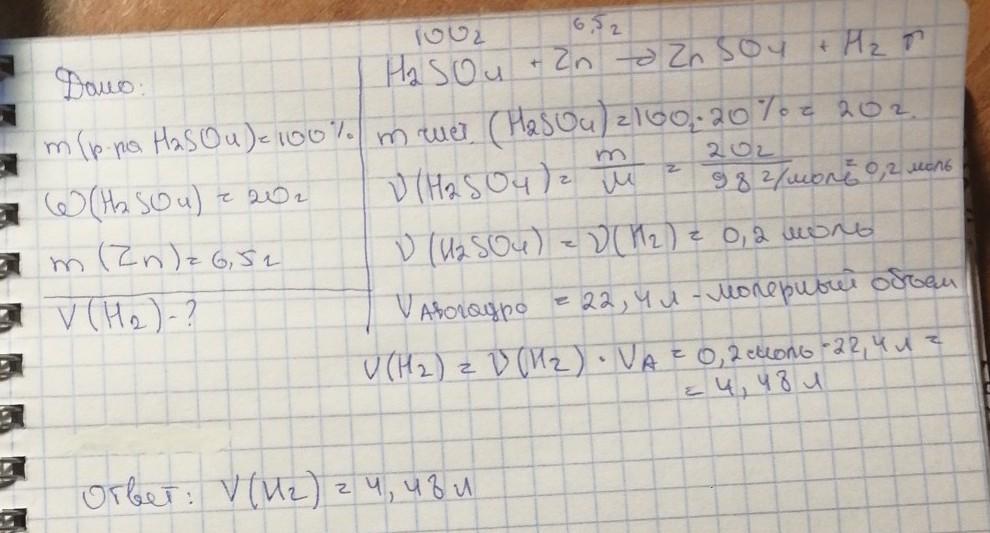 Дано:
m(р-ра H2SO4)=100%
ω(H2SO4) = 20г
m (Zn)=6,5г
V(H2)-?
100г 6,5г
H2SO4 + Zn → ZnSO4 + H2 ↑
m чист. (H2SO4)=100г·20%= 20г.
ν(H2SO4)= m/M = 20г/98г/моль = 0,2 моль
ν(H2SO4) = ν(H2)= 0,2 моль
VАвогадро = 22,4л-молярный объем
V(H2)= ν(H2)·VA = 0,2моль·22,4л =
= 4,48л
Ответ: V(H2)=4,48л